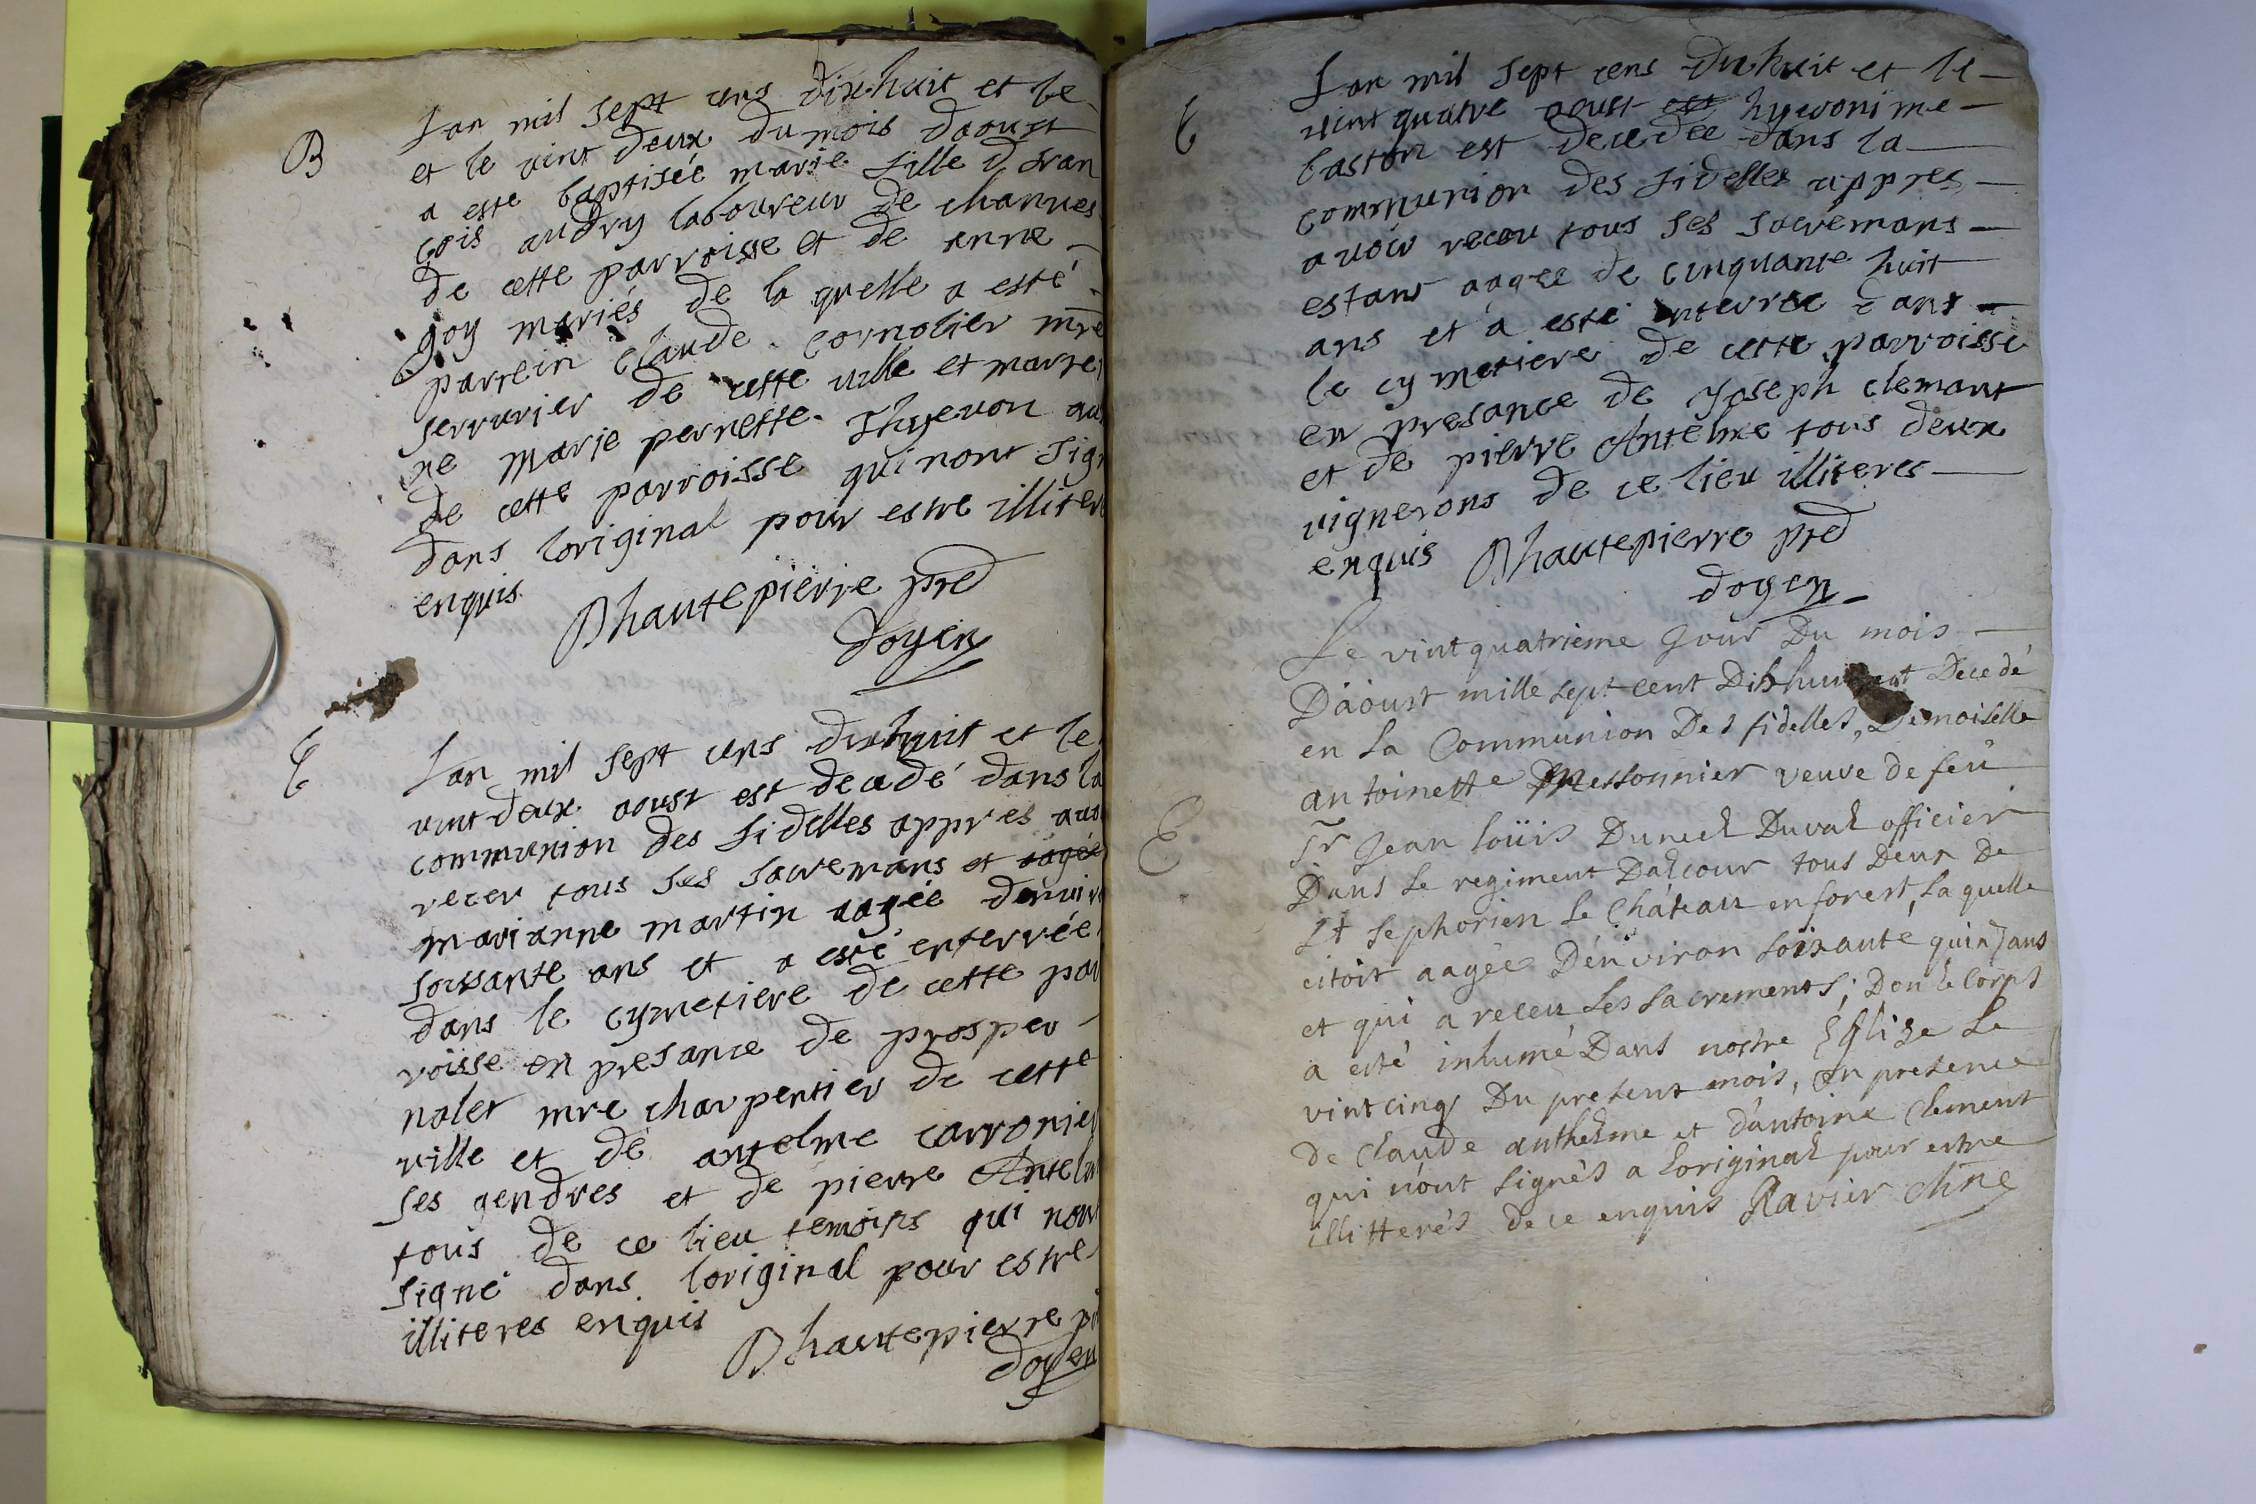 B
Lan mil sept cens dixhuit et le
et le vint deux du mois daoust
a esté baptisée marie fille d fran
cois audry laboureur de channes
de cette parroisse et de anne
goy mariés de la quelle a esté
parrein claude cornolier mre
serrurier de cette ville et marrei
ne marie pernette Thyevon
de cette parroisse qui nont sig
dans loriginal pour estre illiter
enquis
Dhautepierre pré
doyen
E
Lan mil sept cens dixhuit et le
vint deux aoust est decedé dans la
communion des fidelles appres avo
receu tous ses sacremans et aagée
marianne martin aagée denvir
soixante ans et a esté enterrée
dans le cymetiere de cette par
roisse en presance de prosper
nalet mre charpentier de cette
ville et de antelme carronier
ses gendres et de pierre Antelm
tous de ce lieu temoins qui nont
signé dans loriginal pour estre
illiteres enquis
Dhautepierre p
doyen
E
Lan mil sept cens dixhuit et le
vint quatre aoust est hyeronime
baston est decedée dans la
communion des fidelles appres
avoir receu tous ses sacremans
estant aagée de cinquante huit
ans et a esté enterrée dans
le cymetiere de cette parroisse
en presance de joseph clemant
et de pierre Antelme tous deux
vignerons de ce lieu illiteres
enquis Dhautepierre pré
doyen
E
Le vintquatrieme jour Du mois
D'aoust mille sept cent Dishuit est Decedé
en la Communion Des fidelles, Demoiselle
antoinette Messonnier veuve de feu
Sr Jean loüis Duneel Duval officier
Dans le regiment Dalcour tous Deux De
St sephorien le Château en forest, laquelle
etoit aagée D'environ soixante quinz ans
et qui a receu les sacrements; Dont le corps
a esté inhumé Dans nostre Eglise le
vintcinq Du present mois, en presence
de Claude anthelme et d'antoine Clement
qui n'ont signés a l'original pour estre
illitterés de ce enquis Ravier chne